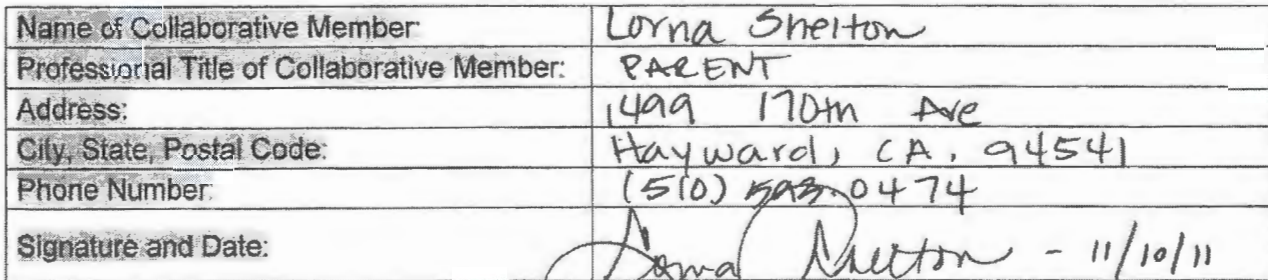 Name of Collaborative Member: Lorna Shelton
Professional Title of Collaborative Member: PARENT
Address: 1499 170th Ave
City, State, Postal Code: Hayward, CA, 94541
Phone Number: (510) 593-0474
Signature and Date: Lorna Shelton - 11/10/11